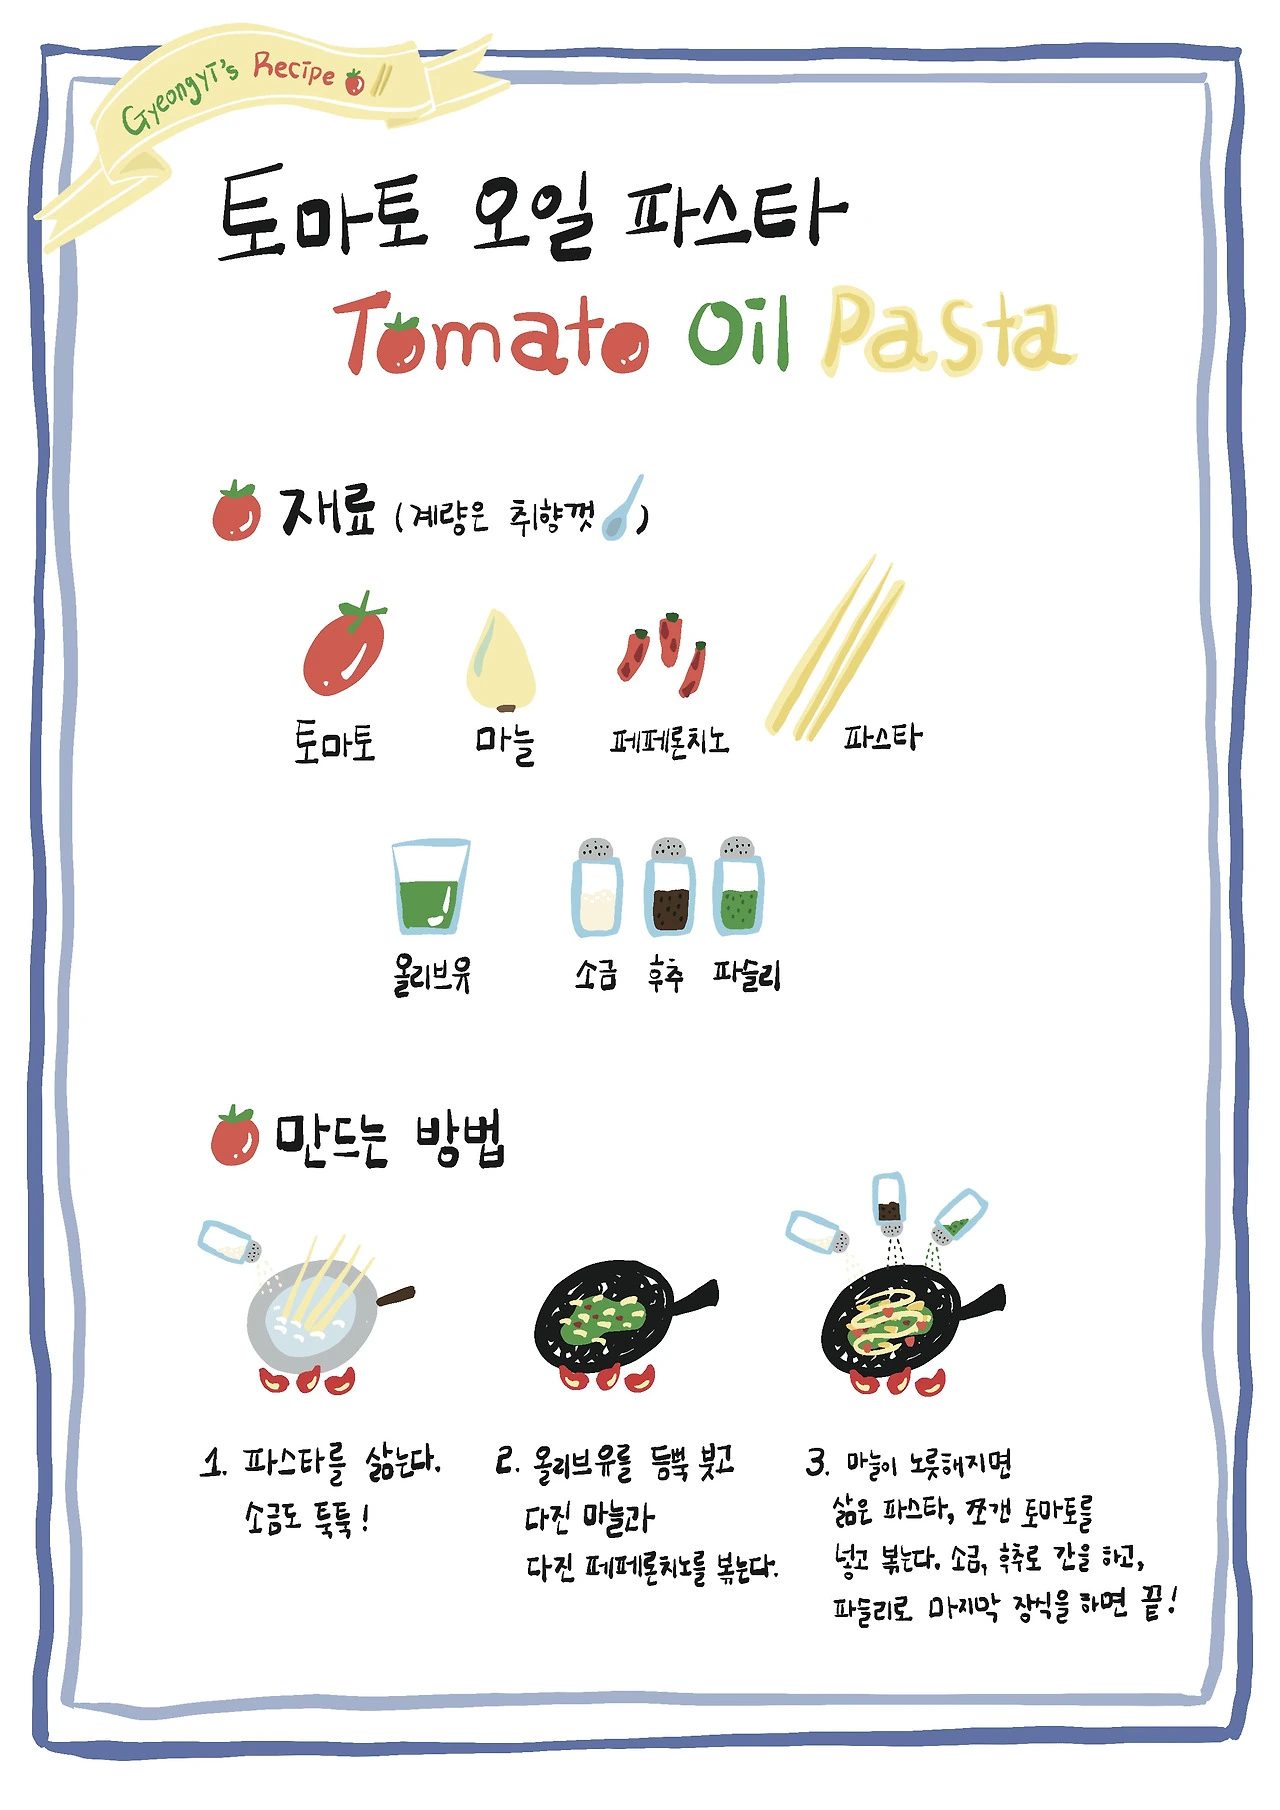 Gyeongyi's Recipe
토마토 오일 파스타
Tomato Oil Pasta
재료 (계량은 취향껏)
토마토 마늘 페페론치노 파스타
올리브유 소금 후추 파슬리
만드는 방법
1. 파스타를 삶는다.
소금도 툭툭!
2. 올리브유를 듬뿍 붓고
다진 마늘과
다진 페페론치노를 볶는다.
3. 마늘이 노릇해지면
삶은 파스타, 쪼갠 토마토를
넣고 볶는다. 소금, 후추로 간을 하고,
파슬리로 마지막 장식을 하면 끝!